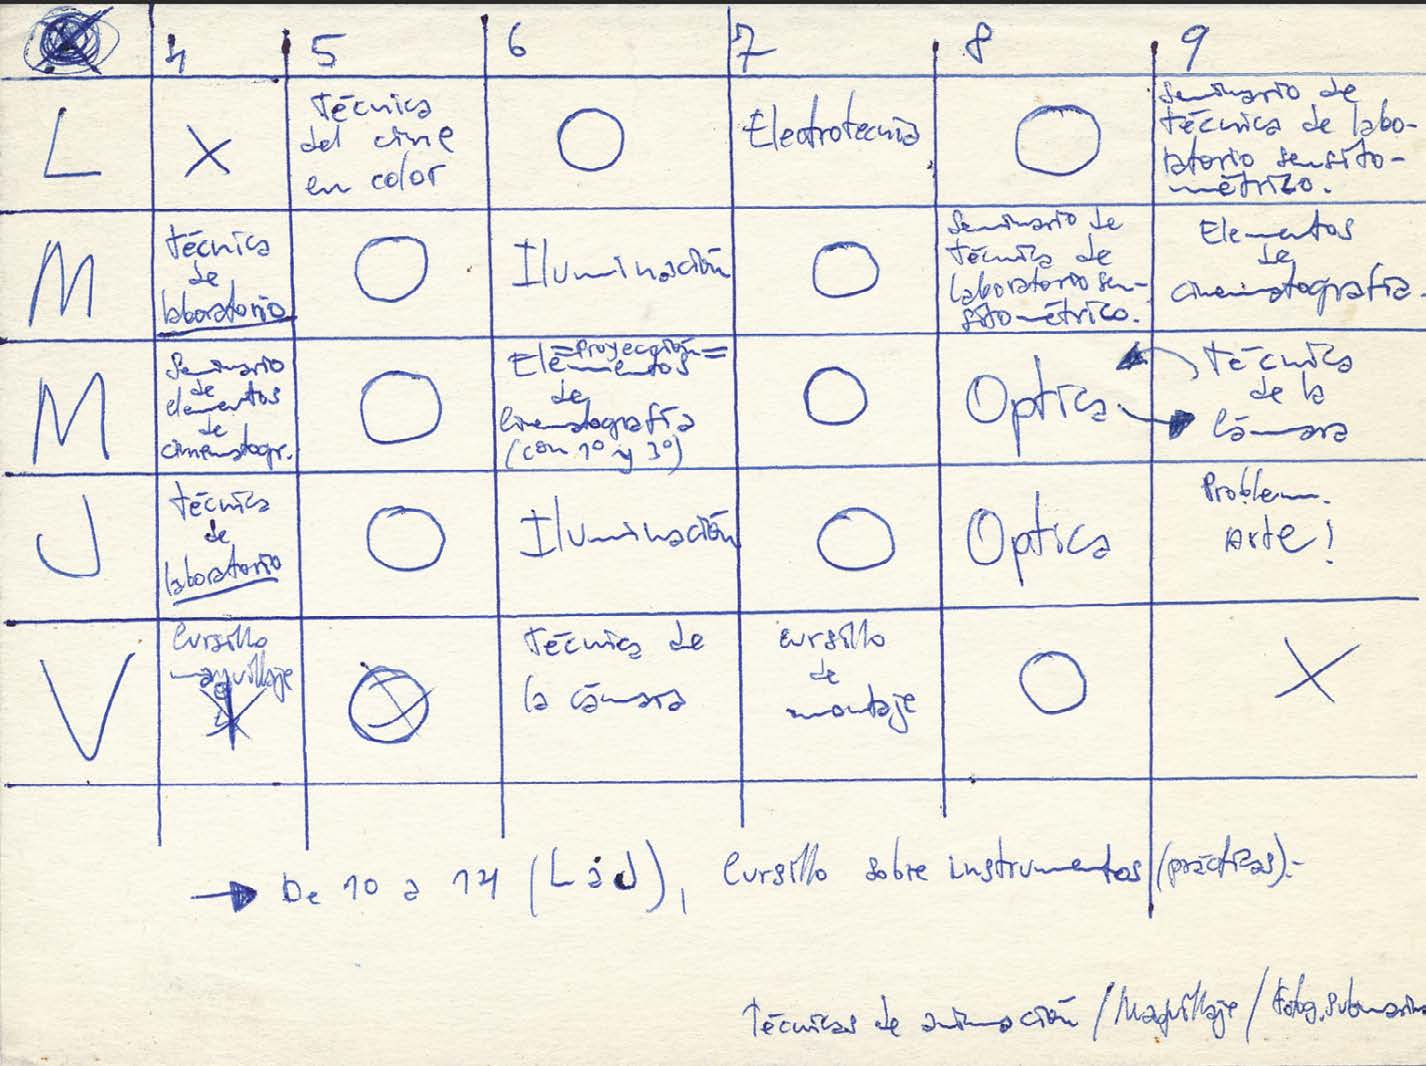 4 5 6 7 8 9
L
X
Técnica
del cine
en color
O
Electrotecnia
O
Seminario de
técnica de labo-
ratorio sensito-
métrico.
M
Técnica
de
laboratorio
O
Iluminación
O
Seminario de
técnica de
laboratorio sen-
sitométrico.
Elementos
de
cinematografía
M
Seminario
de
elementos
de
cinematogr.
O
=Proyección=
Elementos
de
Cinematografía
(con 1º y 3º)
O
Optica
Técnica
de la
Cámara
J
Técnica
de
laboratorio
O
Iluminación
O
Optica
Problem.
Arte!
V
Cursillo
maquillaje
Técnica de
la cámara
Cursillo
de
montaje
O
X
→ De 10 a 14 (L a J), Cursillo sobre instrumentos (prácticas).-
Técnicas de animación / Maquillaje / Fotog. Submarina